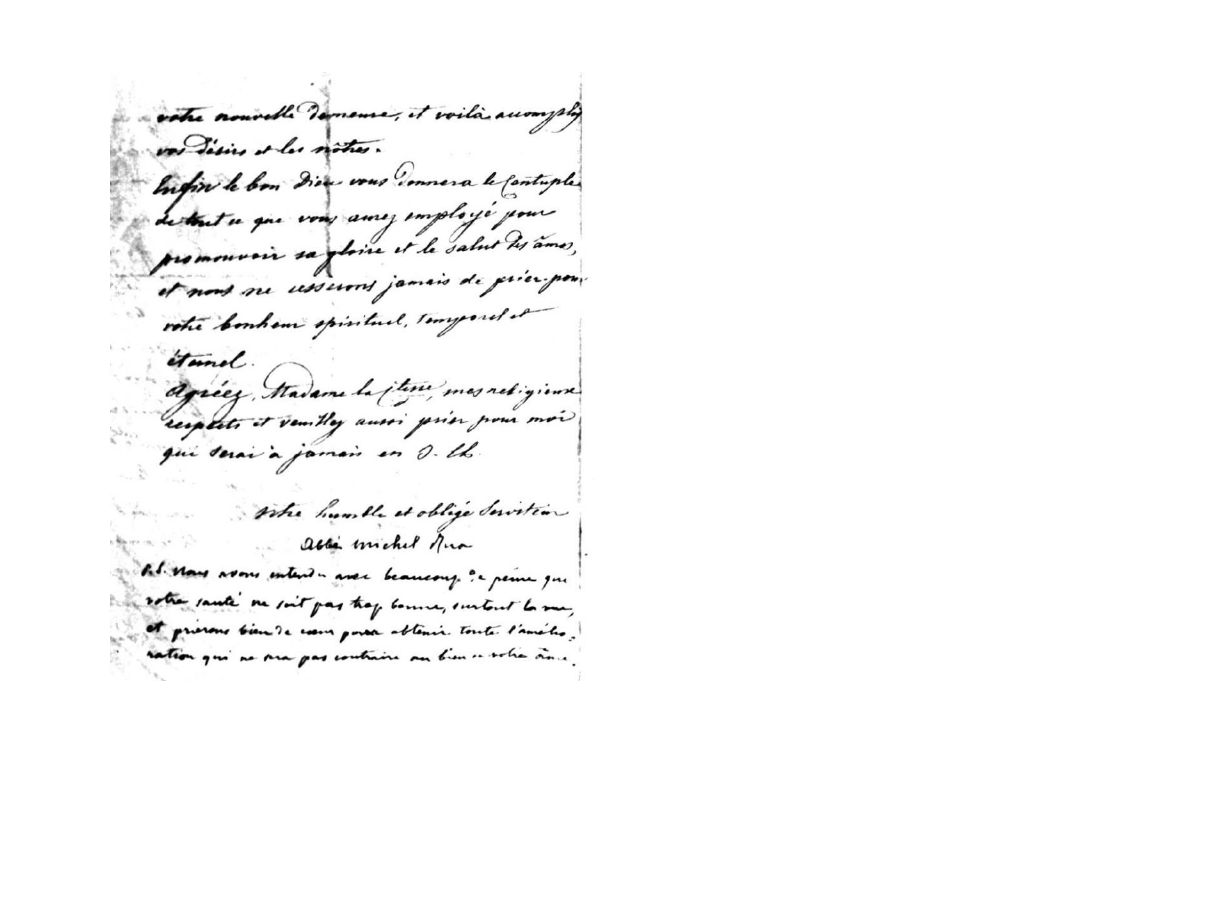 votre nouvelle demeure, et voilà accomplis
vos désirs et les nôtres.
Enfin le bon Dieu vous donnera le Centuple
de tout ce que vous aurez employé pour
promouvoir sa gloire et le salut des âmes,
et nous ne cesserons jamais de prier pour
votre bonheur spirituel, temporel et
éternel.
Agréez, Madame la Ctesse, mes religieux
respects et veuillez aussi prier pour moi
qui serai à jamais en J. Ch.
Votre humble et obligé Serviteur
Abbé Michel Rua
P.S. Nous avons entendu avec beaucoup de peine que
votre santé ne soit pas trop bonne, surtout la vue,
et prierons bien de cœur pour obtenir toute l'amélio-
ration qui ne sera pas contraire au bien de votre âme.